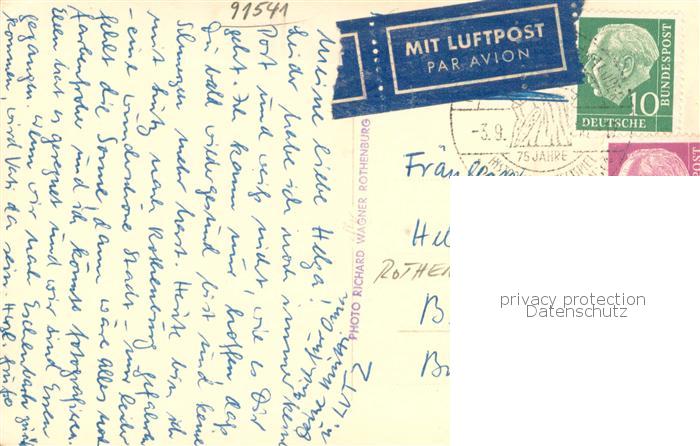 91541
MIT LUFTPOST
PAR AVION
10
DEUTSCHE
BUNDESPOST
-3.9.
75 JAHRE
POST
Meine liebe Helga!
Leider habe ich noch immer keine
Post und weiß nicht, wie es Dir
geht. Ich kann nur hoffen, daß
Du wohl wiedergesund bist und keine
Schmerzen mehr hast. Heute bin ich
mit Lutz nach Rothenburg gefahren
- eine wunderschöne Stadt - nur leider
fehlt die Sonne, dann wäre alles noch
farbenfroher und ich könnte fotografieren.
Eben hat es geregnet und wir sind Essen
gegangen. Wenn wir nach Eschenbach zurück
kommen, wird Vati da sein. Herzl. Grüße
Oma
Mutti
u. LUTZ
PHOTO RICHARD WAGNER ROTHENBURG
Fräulein
Hel
ROTHEN
B
privacy protection
Datenschutz